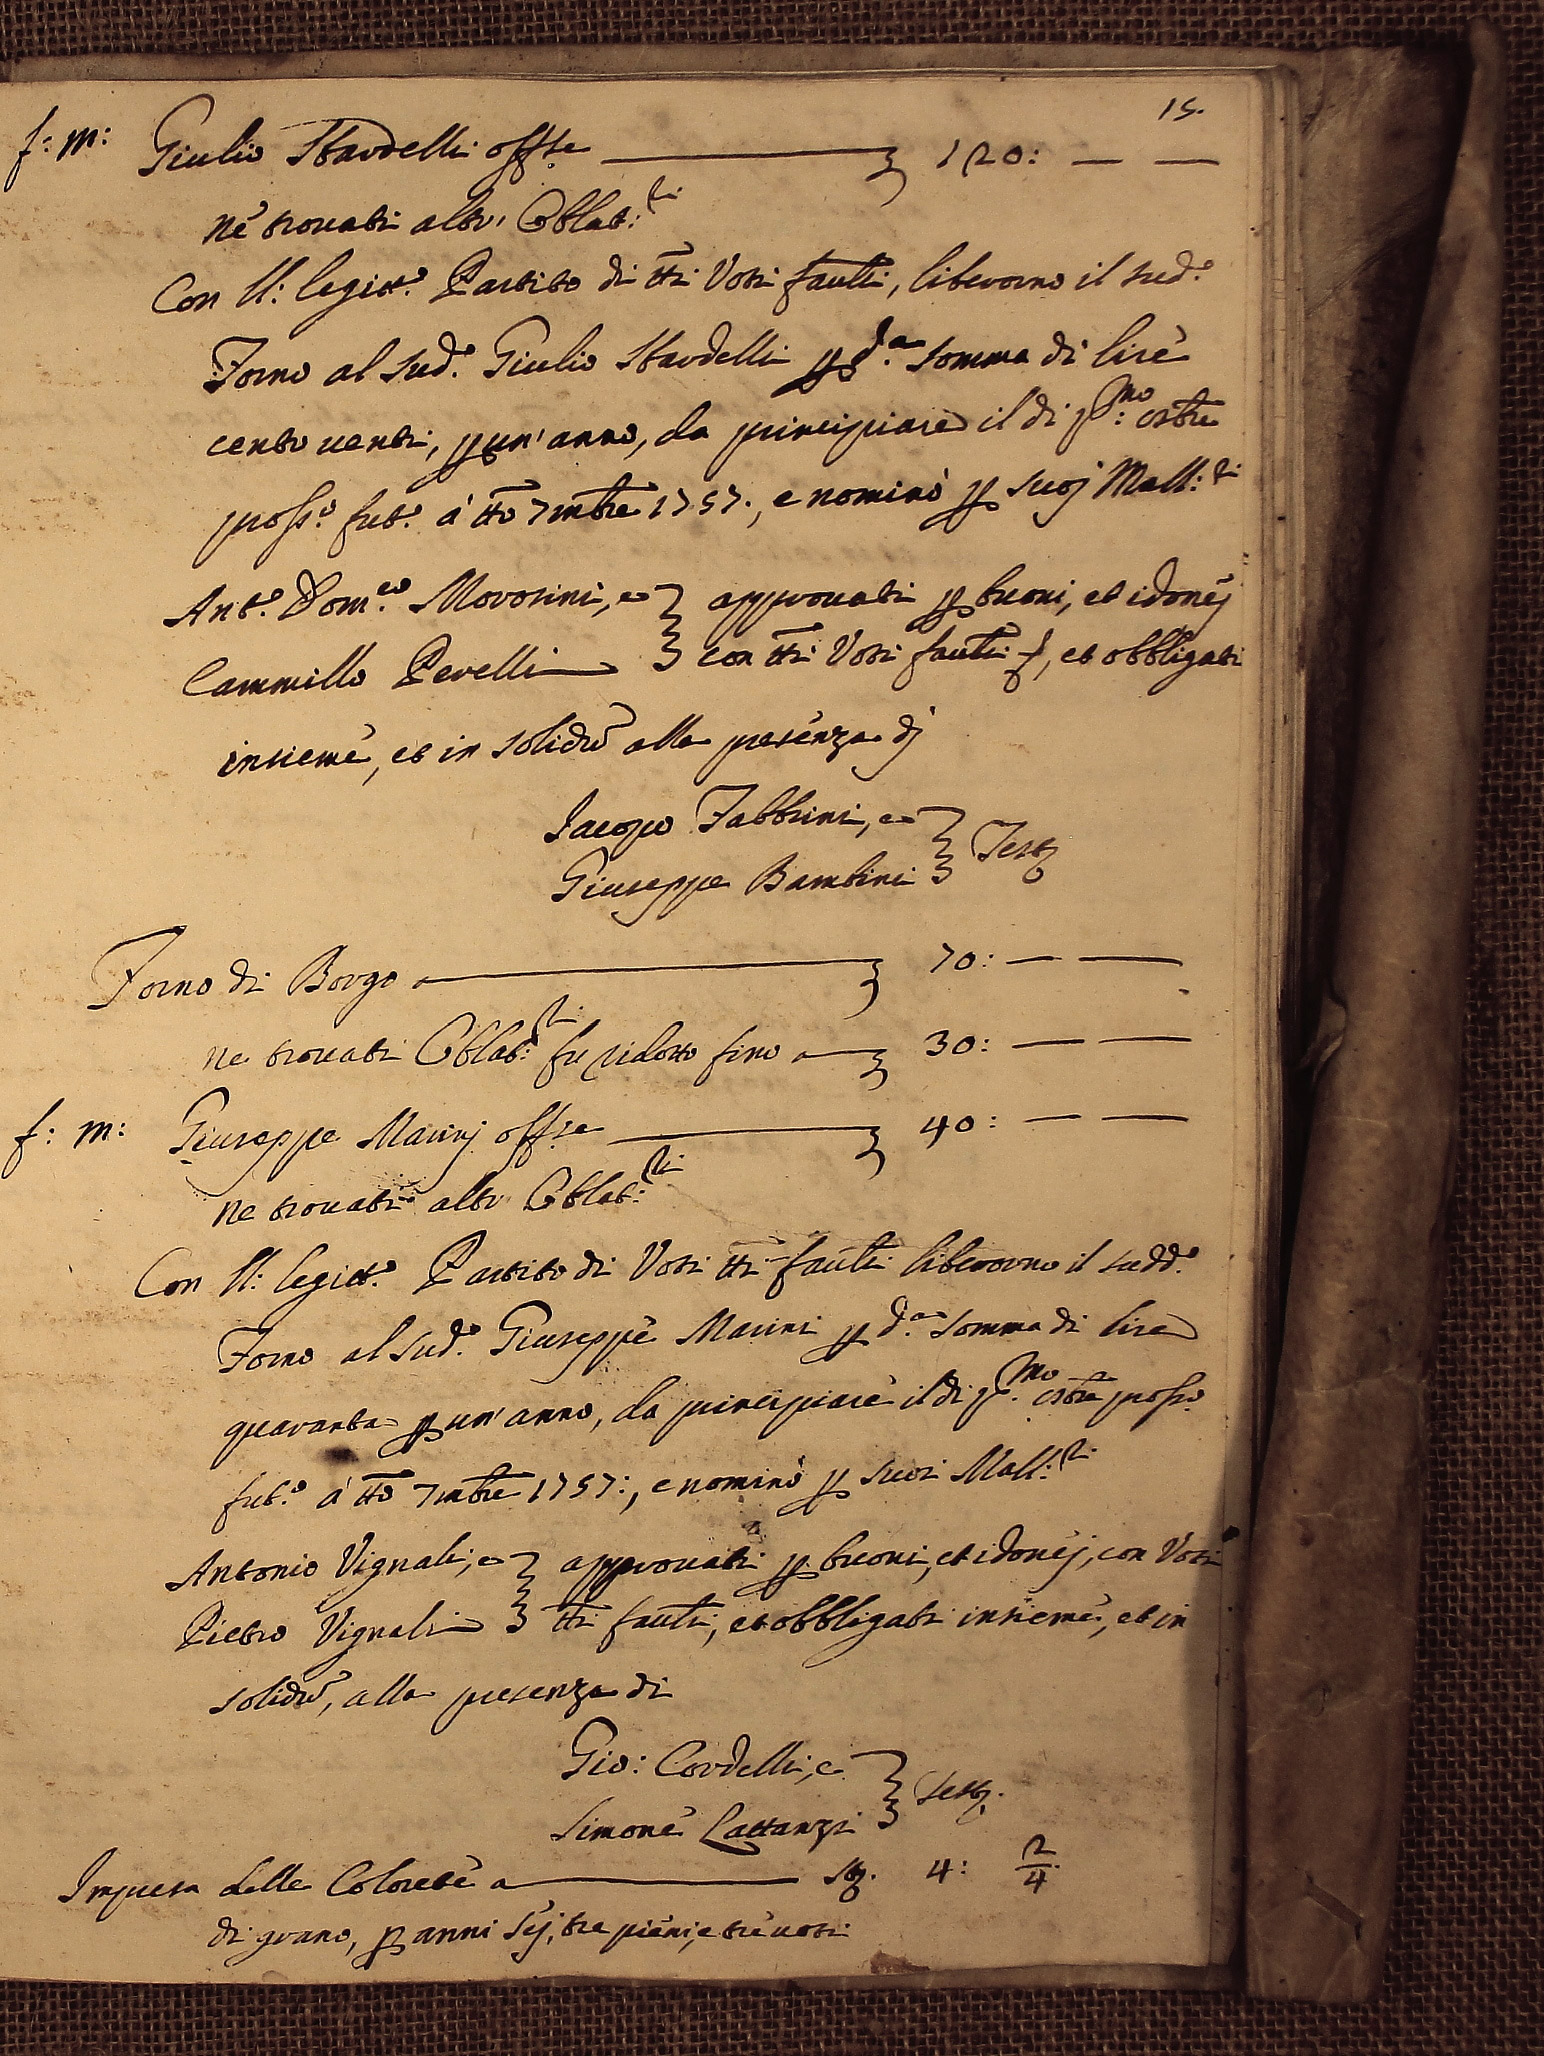 15.
f: m: Giulio Sbardelli offse 120: — —
nè trouati altri Oblat:ri
Con ll: legitt.o Partito di tti Voti fauti, liberorno il sud.o
Forno al sud.o Giulio Sbardelli p d.a somma di lire
cento uenti, p un' anno, da principiare il di p:mo 8bre
pross.o fut.o à tto 7mbre 1757., e nominò p suoj Mall:ri
Ant.o Dom.co Morosini, e approuati p buoni, et idonej
Cammillo Perelli con tti Voti fauti, et obbligati
insieme, et in solidu alla presenza dj
Iacopo Fabbrini, e
Giuseppe Bambini Test
Forno di Borgo 70: — —
ne trouati Oblat:ri fu ridotto fino a 30: — —
f: m: Giuseppe Marinj offse 40: — —
ne trouati altri Oblat:ri
Con ll: legitt.o Partito di Voti tti fauti liberorno il sudd.o
Forno al sud.o Giuseppe Marini p d.a somma di lire
quaranta p un' anno, da principiare il di p.mo 8bre pross.o
fut.o à tto 7mbre 1757:, e nominò p suoi Mall:ri
Antonio Vignali, e approuati p buoni, et idonej, con Voti
Pietro Vignali tti fauti, et obbligati insieme, et in
solidu, alla presenza di
Gio: Cordelli, e
Simone Lattanzi Test.
Impresa delle Colorete a st. 4: 2/4
di grano, p anni sej, tre pieni, e tre uoti